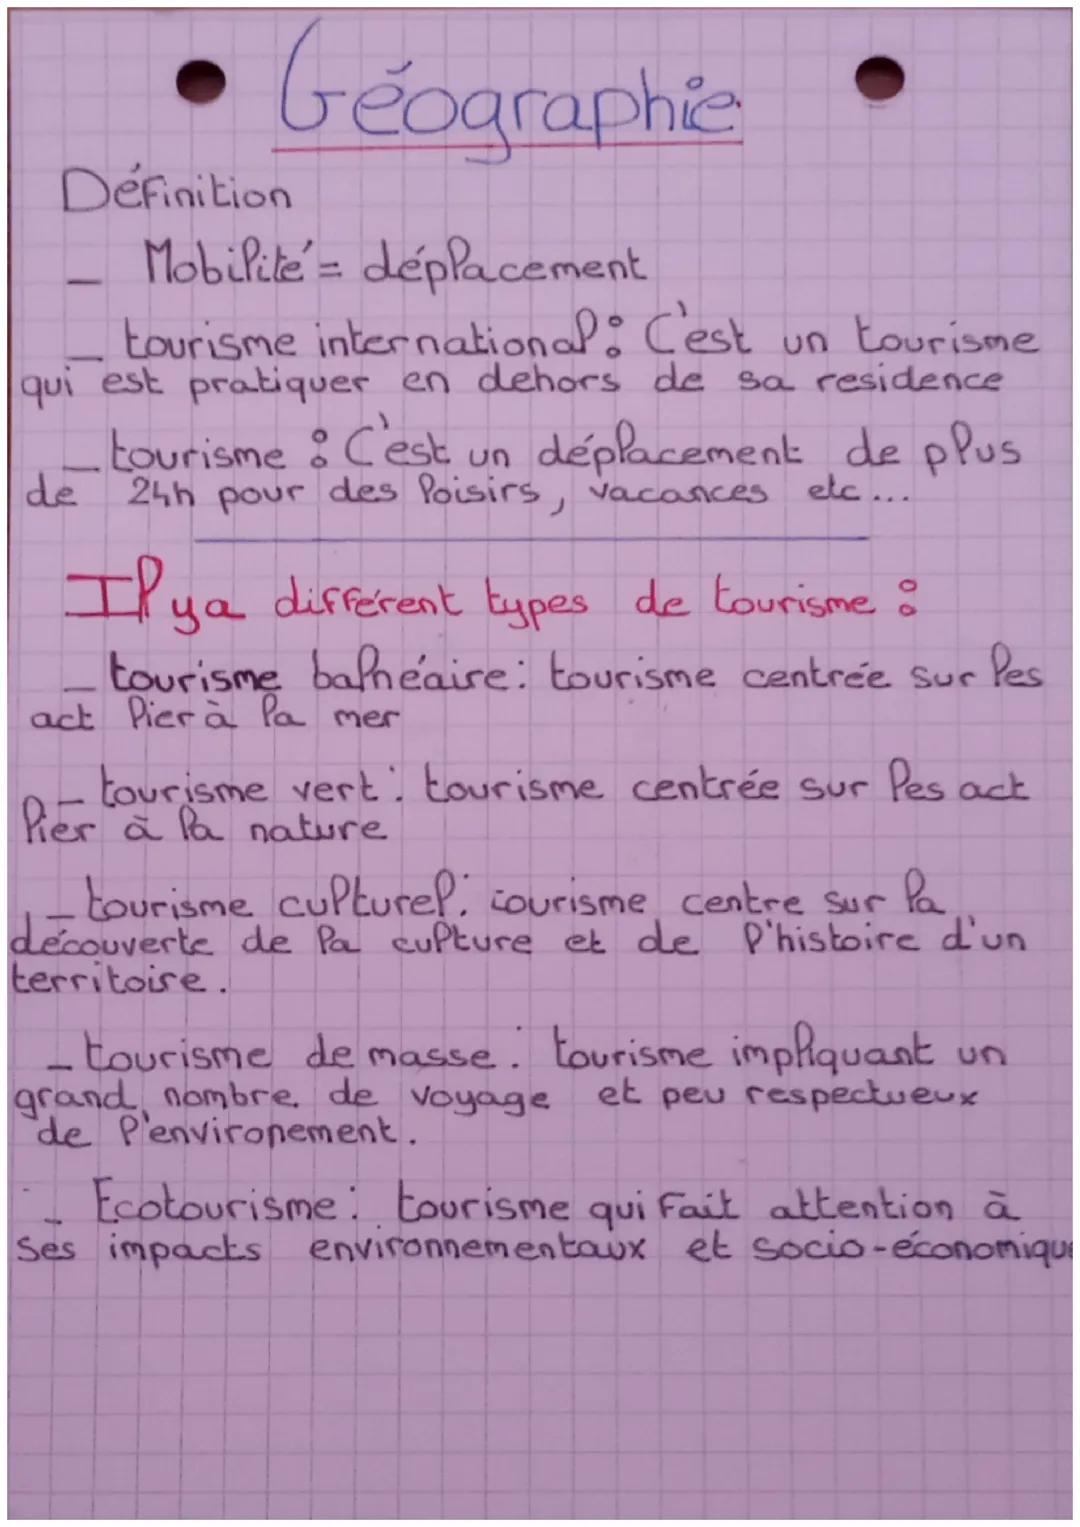 Géographie
Définition
_ Mobilité = déplacement
_ tourisme international : C'est un tourisme
qui est pratiquer en dehors de sa residence
_ tourisme : C'est un déplacement de plus
de 24h pour des loisirs, vacances etc...
Il y a différent types de tourisme :
_ tourisme balnéaire : tourisme centrée sur les
act lier à la mer
_ tourisme vert : tourisme centrée sur les act
lier à la nature
_ tourisme culturel : tourisme centre sur la
découverte de la culture et de l'histoire d'un
territoire.
_ tourisme de masse : tourisme impliquant un
grand nombre de voyage et peu respectueux
de l'environement.
_ Ecotourisme : tourisme qui fait attention à
ses impacts environnementaux et socio-économique